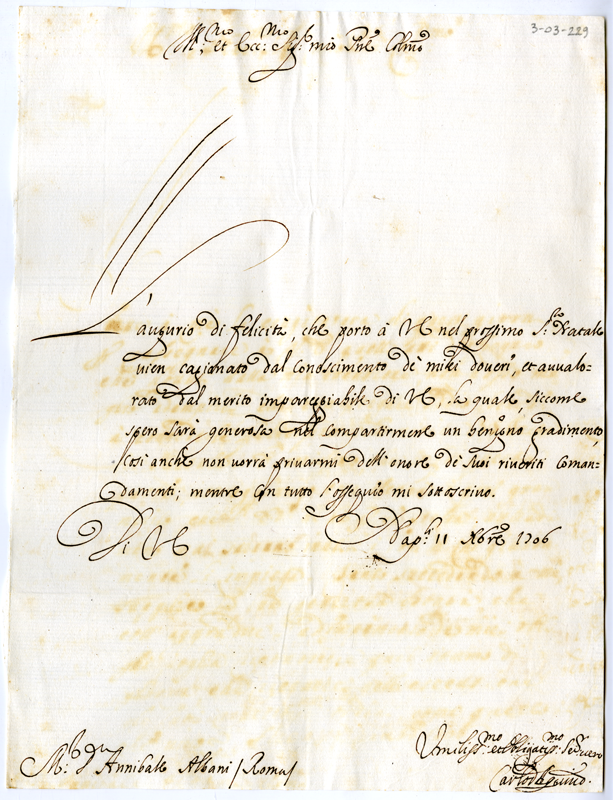 3-03-229
Ill.mo et Ecc.mo Sig.r mio Pne Colmo
L'augurio di felicità, che porto à VE nel prossimo S.to Natale
vien cagionato dal conoscimento de' miei doveri, et avvalo-
rato dal merito impareggiabile di VE, la quale, siccome
spero sarà generosa nel compartirmene un benigno gradimento,
così anche non vorrà privarmi dell'onore de' suoi riveriti coman-
damenti; mentre con tutto l'ossequio mi sottoscrivo.
Di VE Nap.li 11 Xbre 1706
M.r d Annibale Albani / Roma /
Umiliss.mo et obligatis.mo Se.re vero
Carlo